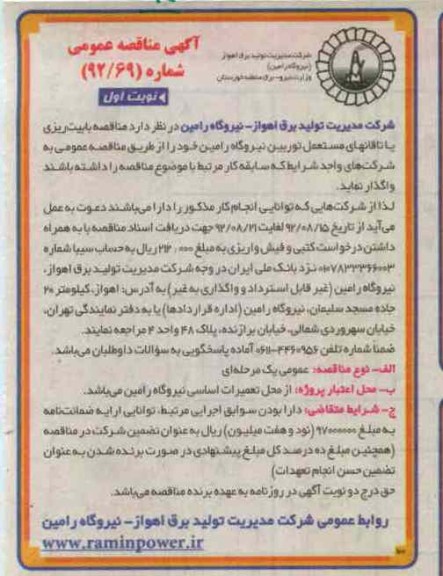 آگهی مناقصه عمومی
شماره (۹۲/۶۹)
نوبت اول
شرکت مدیریت تولید برق اهواز
(نیروگاه رامین)
وزارت نیرو - برق منطقه خوزستان
شرکت مدیریت تولید برق اهواز- نیروگاه رامین در نظر دارد مناقصه بابیت‌ریزی
یاتاقانهای مستعمل توربین نیروگاه رامین خود را از طریق مناقصه عمومی به
شرکت‌های واجد شرایط که سابقه کار مرتبط با موضوع مناقصه را داشته باشند
واگذار نماید.
لذا از شرکت‌هایی که توانایی انجام کار مذکور را دارا می‌باشند دعوت به عمل
می‌آید از تاریخ ۹۲/۰۸/۱۵ لغایت ۹۲/۰۸/۲۱ جهت دریافت اسناد مناقصه با به همراه
داشتن درخواست کتبی و فیش واریزی به مبلغ ۲۱۲/۰۰۰ ریال به حساب سیبا شماره
۰۱۰۷۸۳۳۳۶۶۰۰۳ نزد بانک ملی ایران در وجه شرکت مدیریت تولید برق اهواز،
نیروگاه رامین (غیر قابل استرداد و واگذاری به غیر) به آدرس: اهواز، کیلومتر ۲۰
جاده مسجد سلیمان، نیروگاه رامین (اداره قراردادها) یا به دفتر نمایندگی تهران،
خیابان سهروردی شمالی، خیابان برازنده، پلاک ۴۸ واحد ۴ مراجعه نمایند.
ضمنا شماره تلفن ۴۴۶۰۹۵۶-۰۶۱۱ آماده پاسخگویی به سؤالات داوطلبان می‌باشد.
الف- نوع مناقصه: عمومی یک مرحله‌ای
ب- محل اعتبار پروژه: از محل تعمیرات اساسی نیروگاه رامین می‌باشد.
ج- شرایط متقاضی: دارا بودن سوابق اجرایی مرتبط، توانایی ارایه ضمانت‌نامه
به مبلغ ۹۷۰۰۰۰۰۰ (نود و هفت میلیون) ریال به عنوان تضمین شرکت در مناقصه
(همچنین مبلغ ده درصد کل مبلغ پیشنهادی در صورت برنده شدن به عنوان
تضمین حسن انجام تعهدات)
حق درج دو نوبت آگهی در روزنامه به عهده برنده مناقصه می‌باشد.
روابط عمومی شرکت مدیریت تولید برق اهواز- نیروگاه رامین
www.raminpower.ir